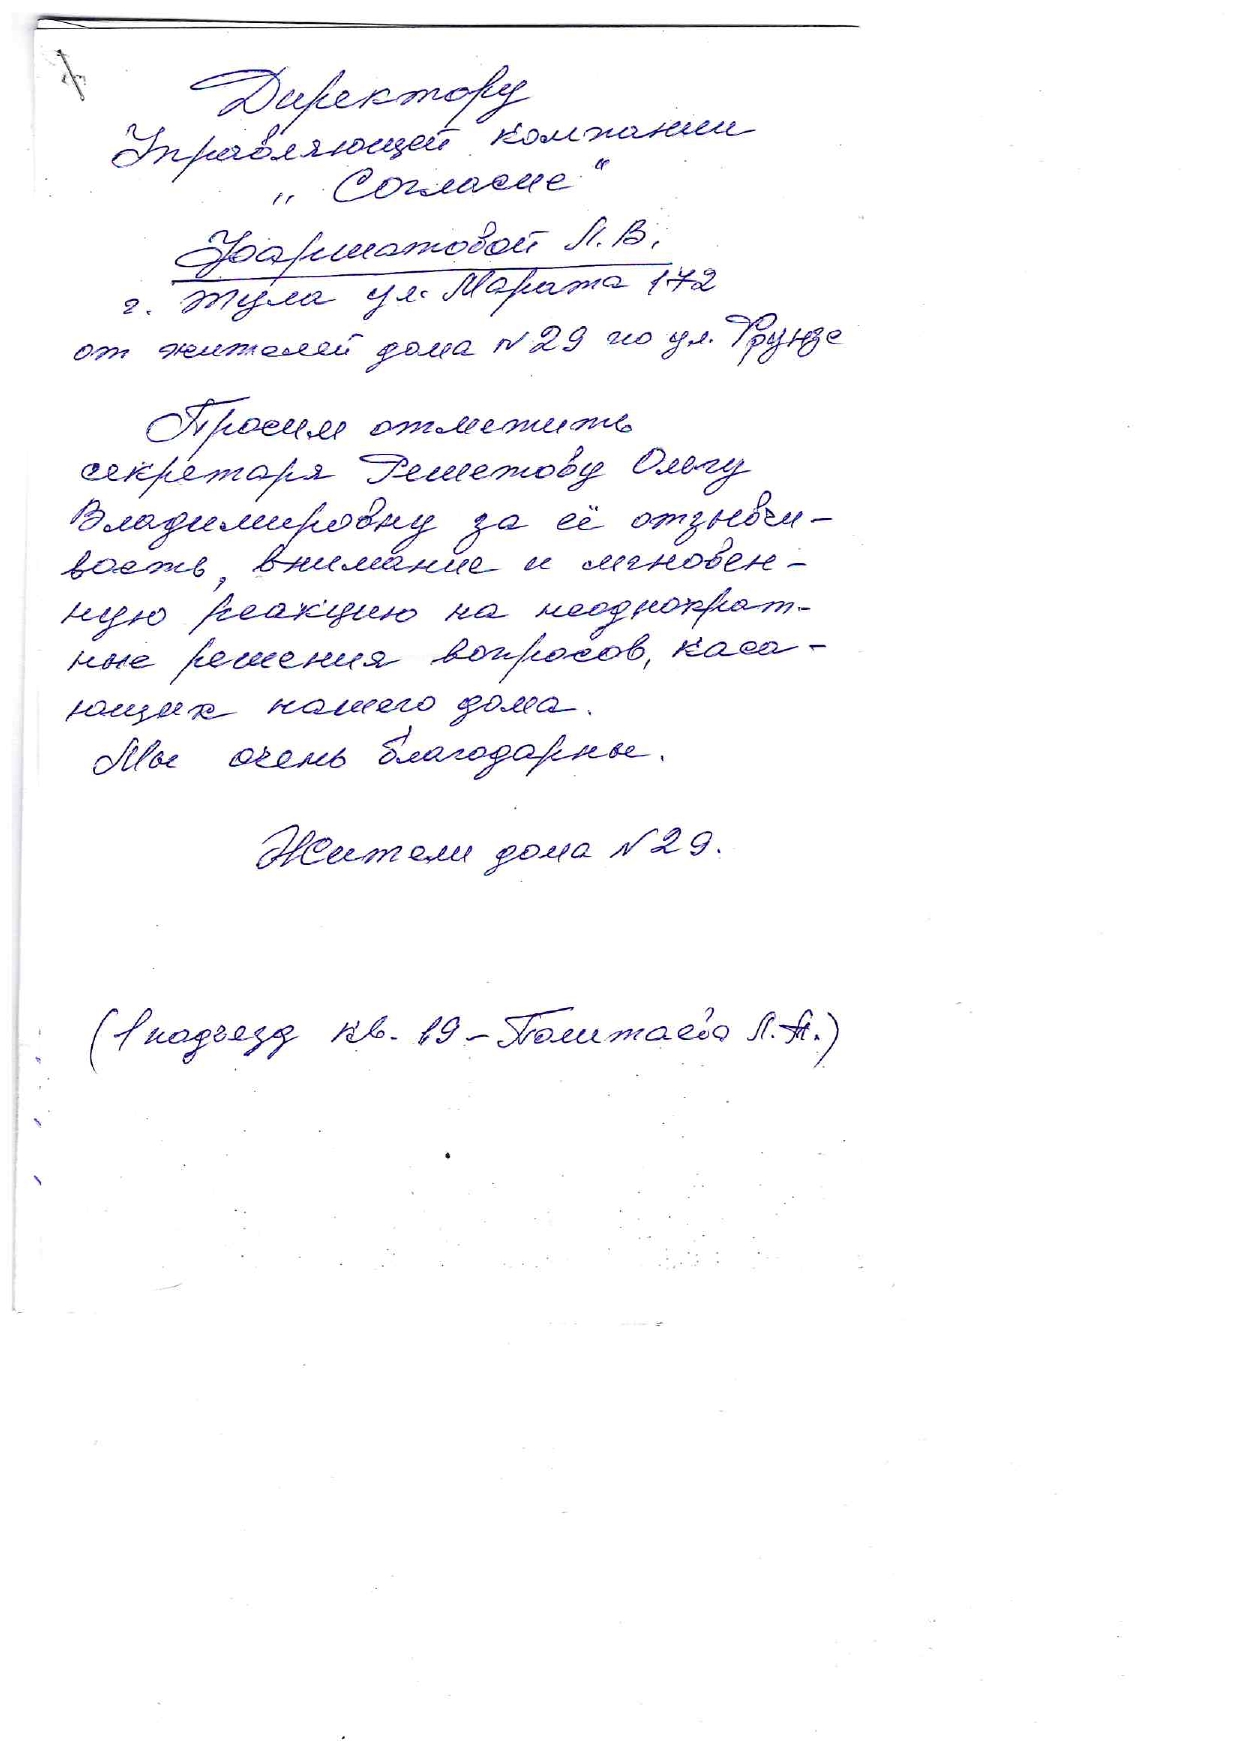 Директору
Управляющей компании
„Согласие“
Л.В.
г. Тула ул. Марата 172
от жителей дома N29 по ул. Фрунзе
Просим отметить
секретаря Решетову Ольгу
Владимировну за её отзывчи-
вость, внимание и мгновен-
ную реакцию на неоднократ-
ные решения вопросов, каса-
ющих нашего дома.
Мы очень благодарны.
Жители дома N29.
(1 подъезд кв. 19 - Полтаева Л.А.)